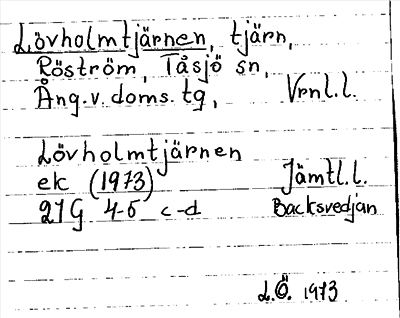 Lövholmtjärnen, tjärn,
Röström, Tåsjö sn,
Ång.v. doms. tg, Vrnl.l.
Lövholmtjärnen
ek (1973) Jämtl.l.
21G 4-5 c-d Backsvedjan
L.Ö. 1973